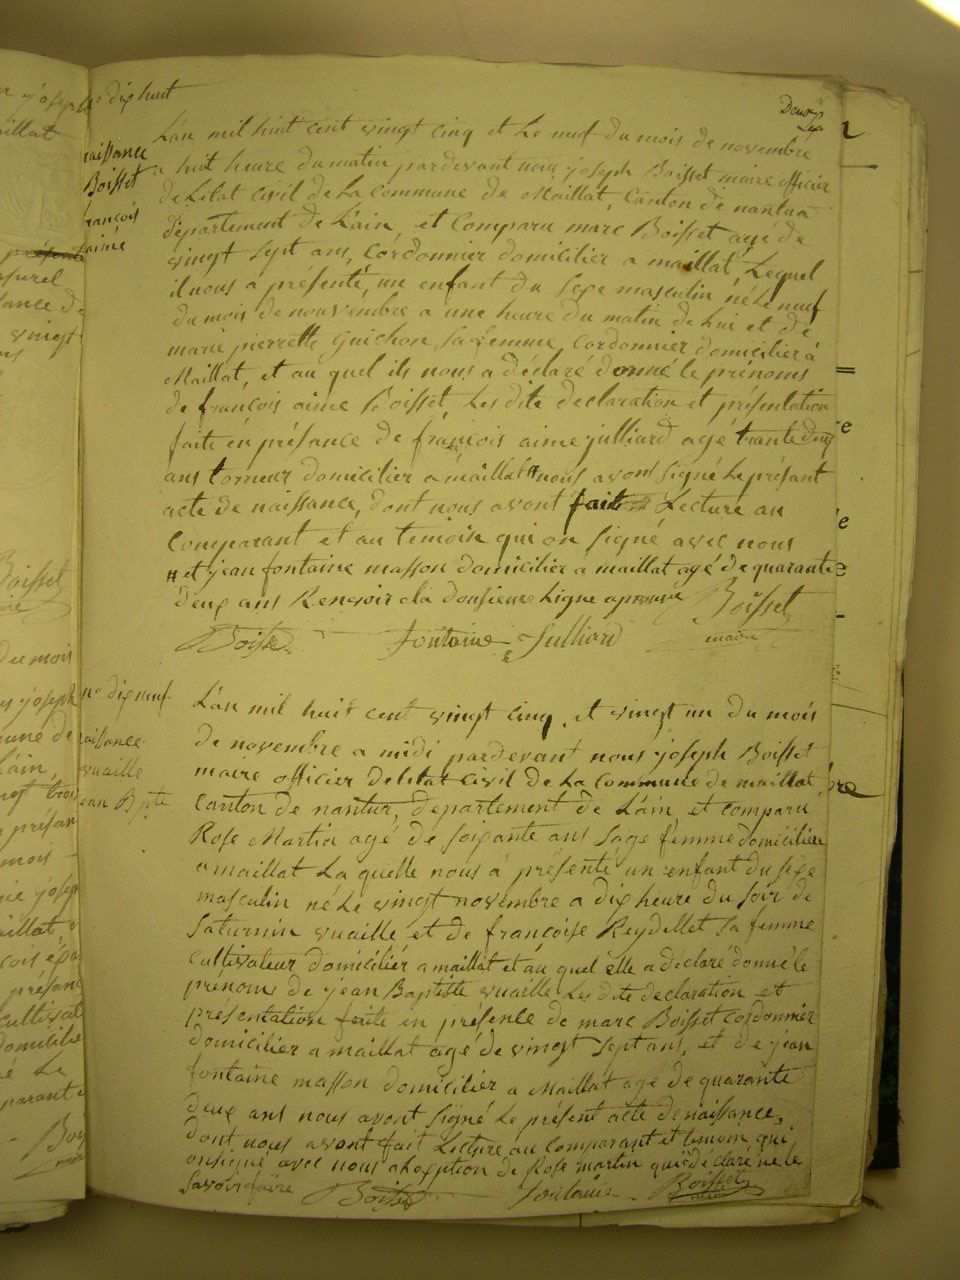 n° dix huit
naissance
Boisset
françois
aimé
L'an mil huit cent vingt cinq et Le neuf du mois de novembre
a huit heure du matin pardevant nous joseph Boisset maire officier
de L'etat civil de La commune de Maillat, Canton de nantua
département de L'ain, et Comparu marc Boisset agé de
vingt sept ans, Cordonnier domicilier a maillat, Lequel
il nous a présenté, un enfant du sexe masculin né Le neuf
du mois de nouvembre a une heure du matin de Lui et de
marie pierrette Guichon, Sa femme, Cordonnier domicilier à
Maillat, et au quel ils nous a déclaré donné le prénoms
de françois aime Boisset, Les dite declaration et présentation
faite en présance de françois aime julliard agé trante deux
ans torneur domicilier a maillat # nous avons signé Le présant
acte de naissance, dont nous avont fait Lecture au
Comparant et au temoin qui on signé avec nous
# et jean fontaine masson domicilier a maillat agé de quarante
deux ans Renvoir a la donsieme Ligne aprouvé Boisset
Boisset fontaine Julliard maire
n° dix neuf
naissance
vuaille
jean Bpte
L'an mil huit cent vingt cinq, et vingt un du mois
de novembre a midi pardevant nous joseph Boisset
maire officier de letat civil de La Commune de maillat,
Canton de nantua, departement de L'ain et comparu
Rose Martin agé de soixante ans Sage femme domicilier
a maillat La quelle nous à présenté un enfant du sexe
masculin né Le vingt novembre a dix heure du soir de
Saturnin vuaille et de françoise Reydellet sa femme
cultivateur domicilié a maillat et au quel elle a declaré donné le
prénoms de jean Baptiste vuaille Les dite declaration et
présentation faite en présence de marc Boisset cordonnier
domicilier a maillat agé de vingt sept ans, et de jean
fontaine masson domicilier a Maillat agé de quarante
deux ans nous avont signé Le présent acte de naissance,
dont nous avont fait Lecture au Comparant et temoin qui
on signé avec nous a hexption de Rose martin qui a déclaré ne le
savoir faire Boisset fontaine Boisset